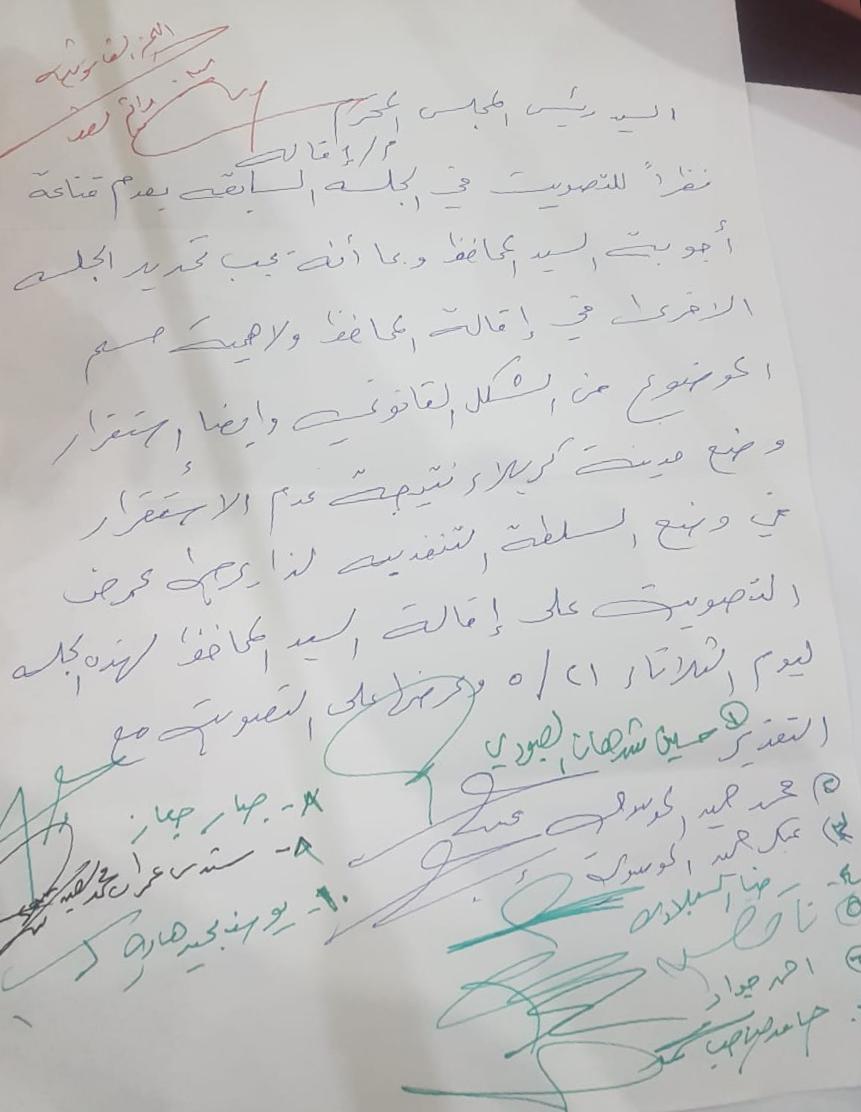 اللجنة القانونية
السيد رئيس المجلس المحترم
م/ إقالة
نظراً للتصويت في الجلسه السابقه بعدم قناعة
أجوبة السيد المحافظ وبما أنه يجب تحديد الجلسه
الاخرى في إقالة المحافظ ولاهمية حسم
الموضوع من الشكل القانوني وايضا إستقرار
وضع مدينة كربلاء نتيجة عدم الإستقرار
في وضع السلطة التنفذيه لذا يرجى عرض
التصويت على إقالة السيد المحافظ لهذه الجلسه
ليوم الثلاثاء ٢١/ ٥ وعرضها على التصويت مع
التقدير
١ حسين شدهان العبودي
٢ محمد حميد الموسوي
٣ عبد حميد الموسوي
٤- رضا السيلاوي
٥ ناجح
٦ احمد جواد
حامد صاحب
٨- جبار
٩- عمران
١٠- يوسف مجيد هادي